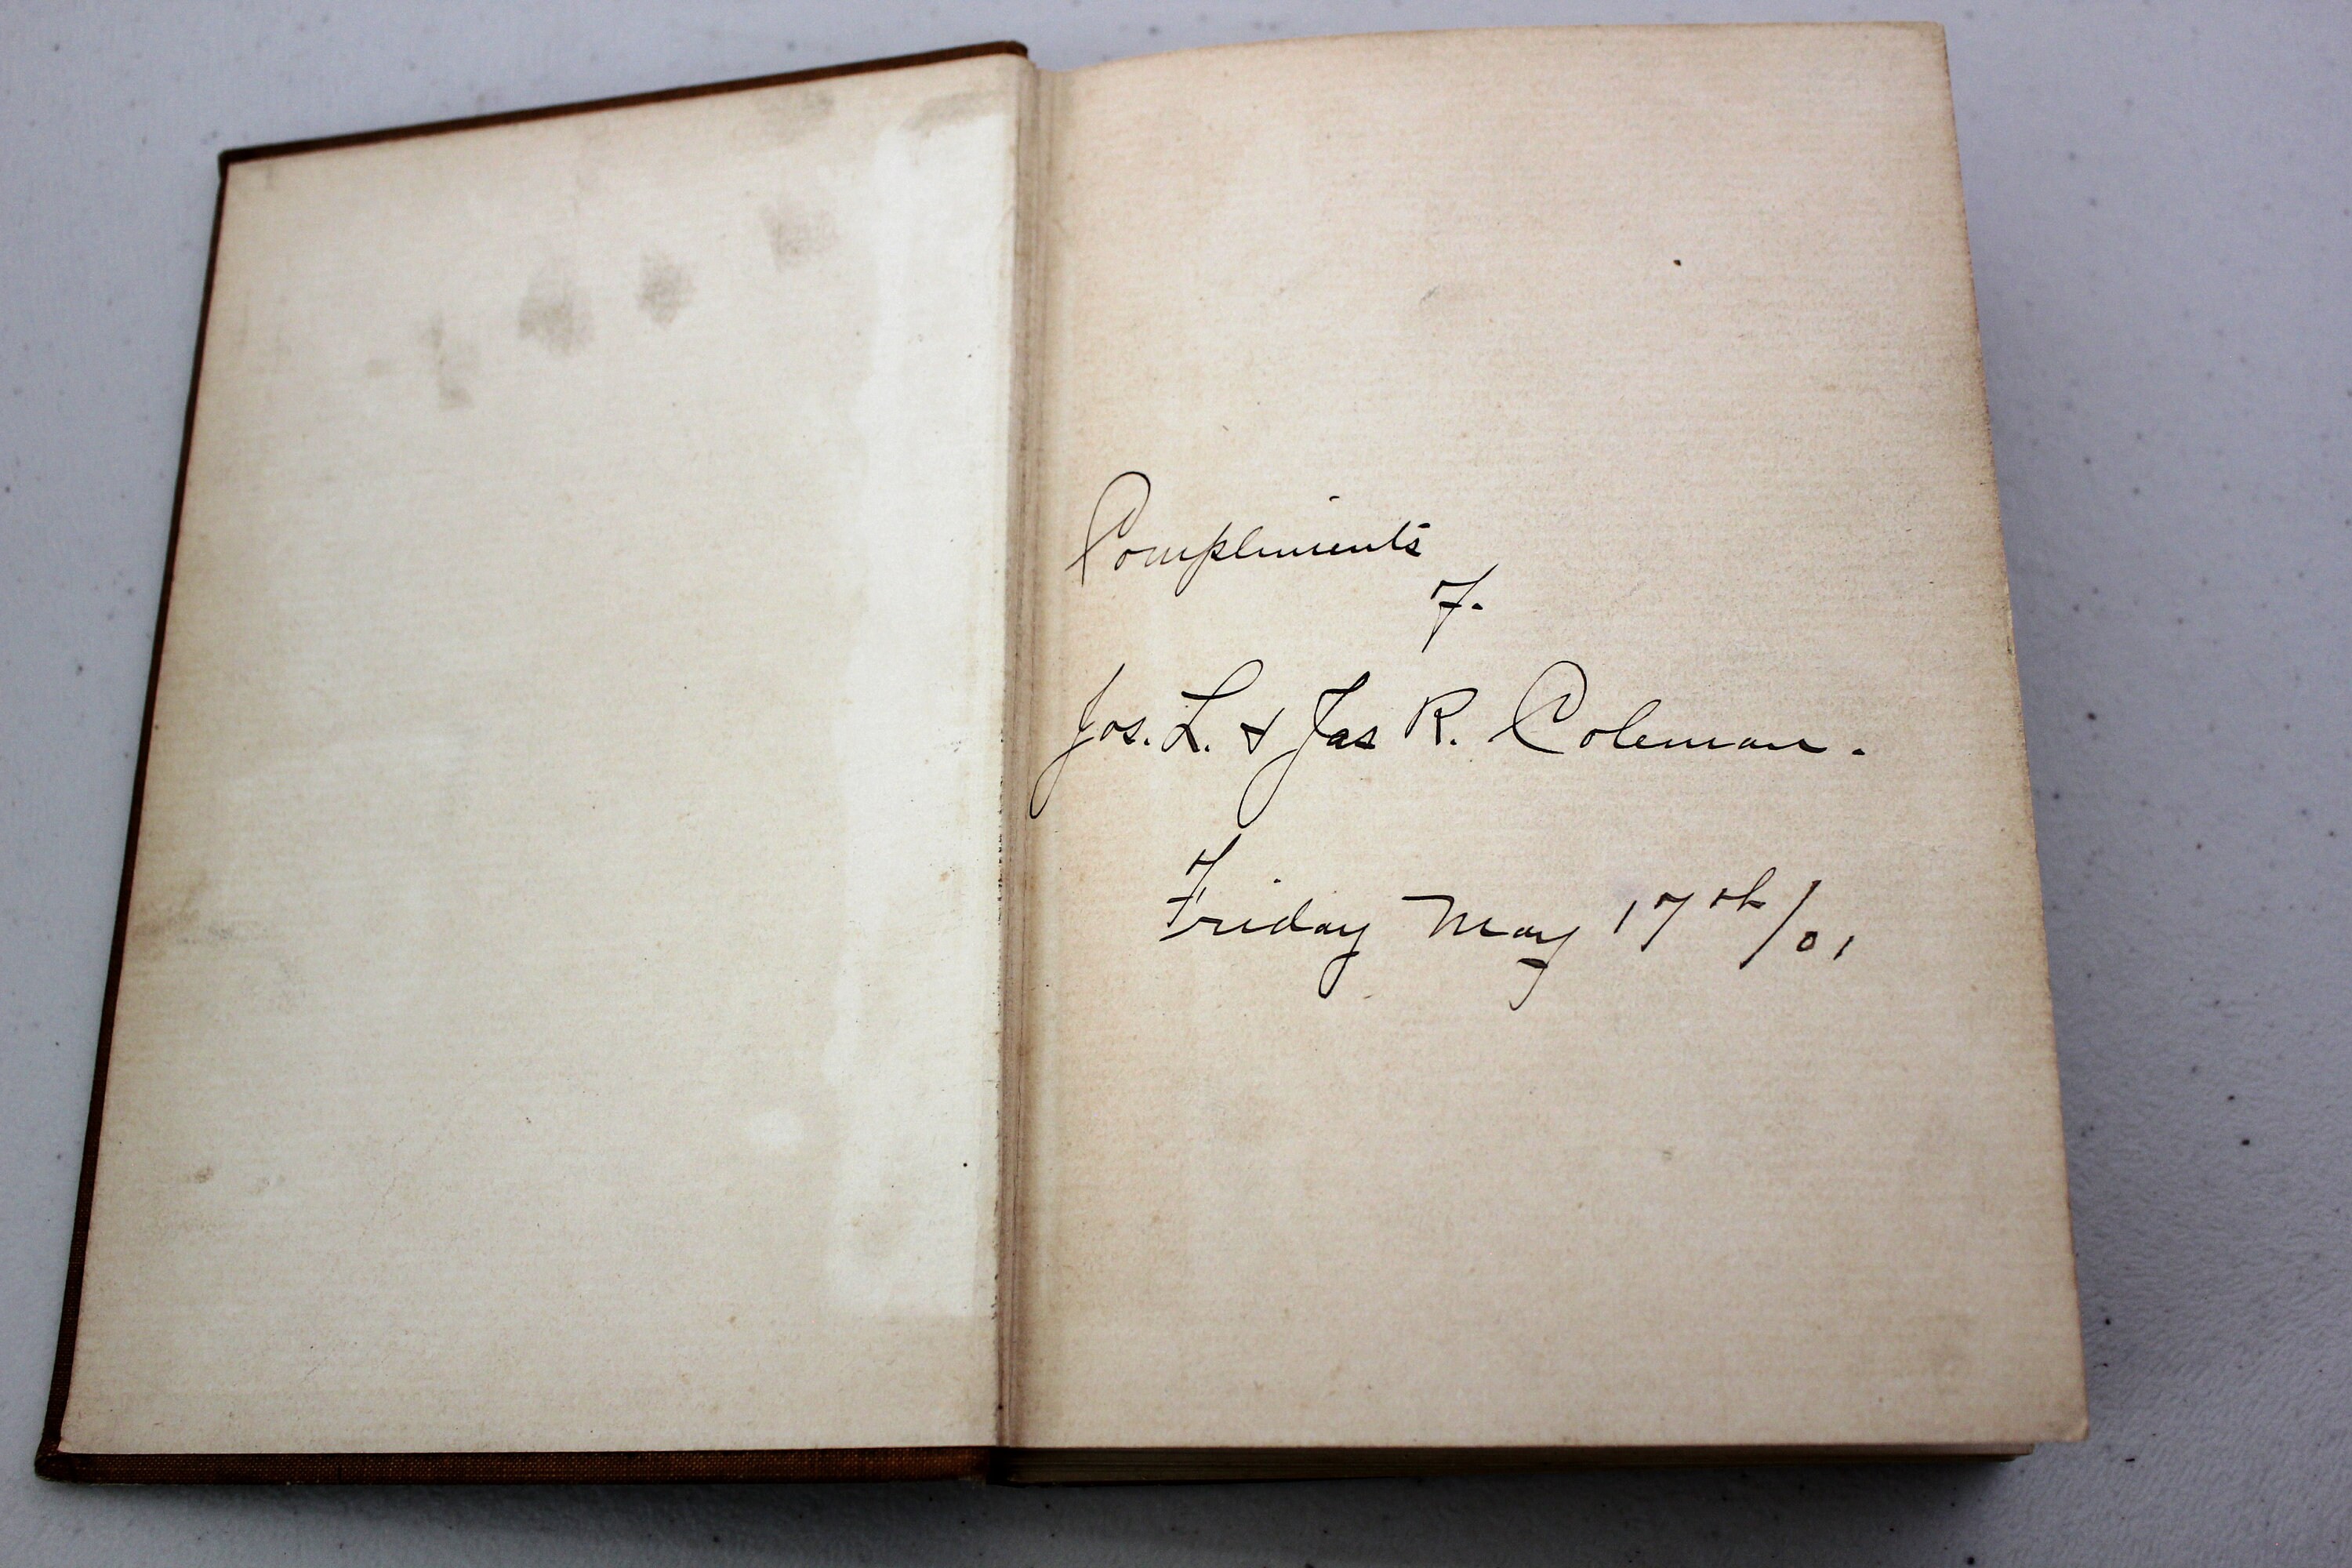 Compliments
of.
Jos. L. & Jas R. Coleman.
Friday May 17th/01